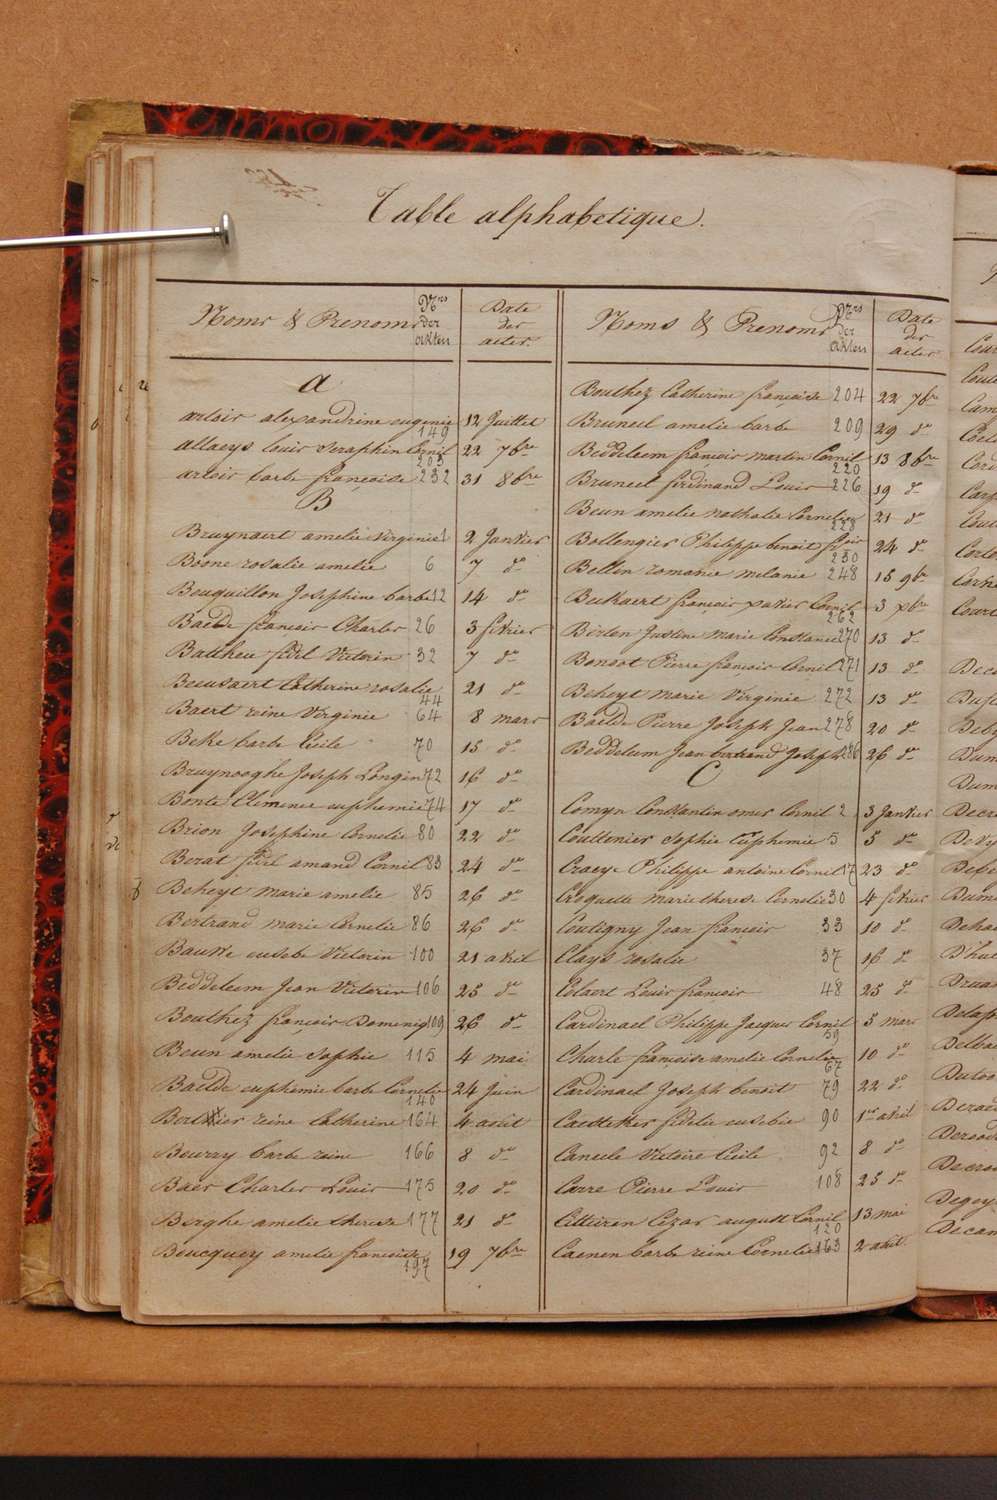 Table alphabetique.
Noms & Prenoms
Nrs
der
akten
Date
des
actes.
A
arloir alexandrine eugenie 149 12 Juillet
allaeys louis Seraphin Cornil 203 22 7bre
arloir barbe françoise 232 31 8bre
B
Bruynaert amelie Virginie 1 2 Janvier
Boone rosalie amelie 6 7 do
Bouquillon Josephine barbe 12 14 do
Baelde francois Charles 26 3 février
Batheu fidel Victorin 32 7 do
Beeusaert Catherine rosalie 44 21 do
Baert reine Virginie 64 8 mars
Beke barbe Cécile 70 15 do
Bruynooghe Joseph Longin 72 16 do
Bonte Clemence euphemie 74 17 do
Brion Josephine Cornelie 80 22 do
Borat fidel amand Cornil 83 24 do
Beheyt marie amelie 85 26 do
Bertrand marie Cornelie 86 26 do
Bauwe eusebe Victorin 100 21 avril
Beddeleem Jean Victorin 106 25 do
Bouthez francois Dominiq 109 26 do
Beun amelie Sophie 115 4 mai
Baelde euphemie barbe Cornelie 140 24 Juin
Bertier reine Catherine 164 4 août
Beuray barbe reine 166 8 do
Baes Charles Louis 175 20 do
Berghe amelie therese 177 21 do
Beucquey amelie francoise 197 19 7bre
Noms & Prenoms
Nrs
der
akten
Date
des
actes
Bouthez Catherine françoise 204 22 7bre
Bruneel amelie barbe 209 29 do
Beddeleem francois martin Cornil 220 13 8bre
Bruneel ferdinand Louis 226 19 do
Beun amelie nathalie Cornelie 228 21 do
Bollengier Philippe benoit 230 24 do
Bellin romanie melanie 248 15 9bre
Beukaert françois xavier Cornil 262 3 xbre
Birlen Justine marie Constance 270 13 do
Bonoot Pierre françois Cornil 271 13 do
Beheyt marie Virginie 272 13 do
Baelde Pierre Joseph Jean 278 20 do
Beddeleem Jean bertrand Joseph 286 26 do
C
Comyn Constantin omer Cornil 2 3 Janvier
Couttenier Sophie Euphemie 5 5 do
Craeye Philippe antoine Cornil 17 23 do
Croquette marie therese Cornelie 30 4 février
Coutigny Jean francois 33 10 do
Clays rosalie 37 16 do
Colaert Louis francois 48 25 do
Cardinael Philippe Jacques Cornil 59 5 mars
Charle françoise amelie Cornelie 67 10 do
Cardinael Joseph benoit 79 22 do
Caesteker fidelie eusebie 90 1er avril
Canule Victoire Cecile 92 8 do
Carre Pierre Louis 108 25 do
Cezar auguste Cornil 120 13 mai
Caenen barbe reine Cornelie 163 2 août